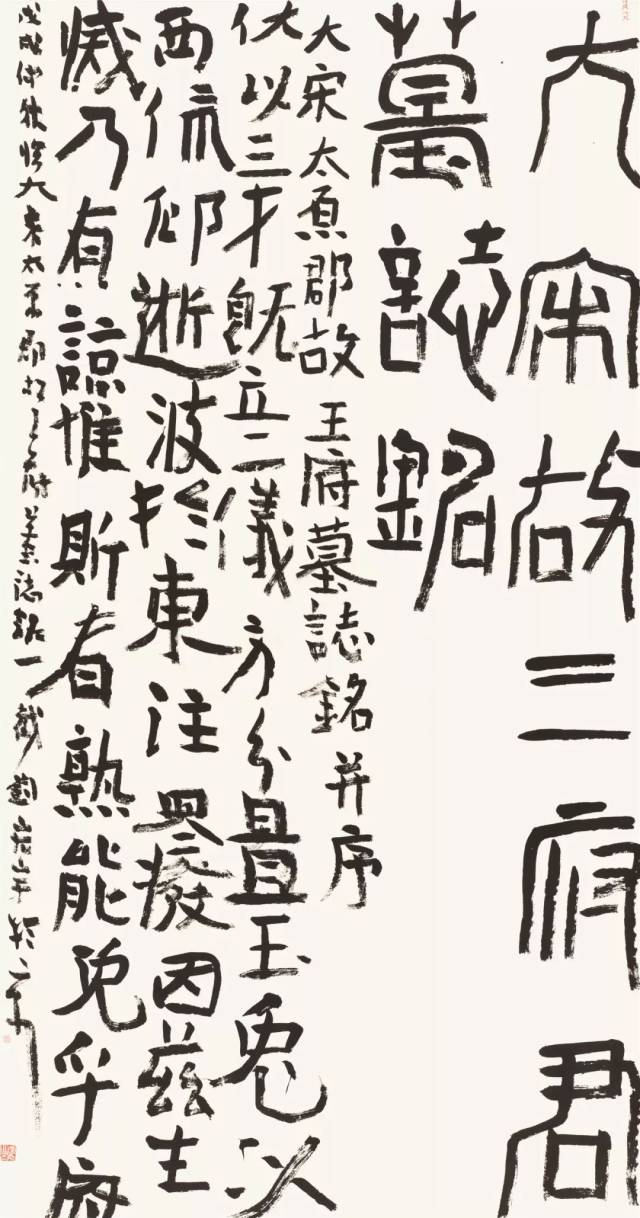 大宋故三府君
墓誌銘
大宋太原郡故王府墓誌銘并序
伏以三才既立二儀方分疊玉兔以
西流仰逝波於東注興癈因茲生
滅乃有諒惟斯者熟能免乎府
戊戌仲秋臨大宋太原郡故王府墓誌銘一截劉